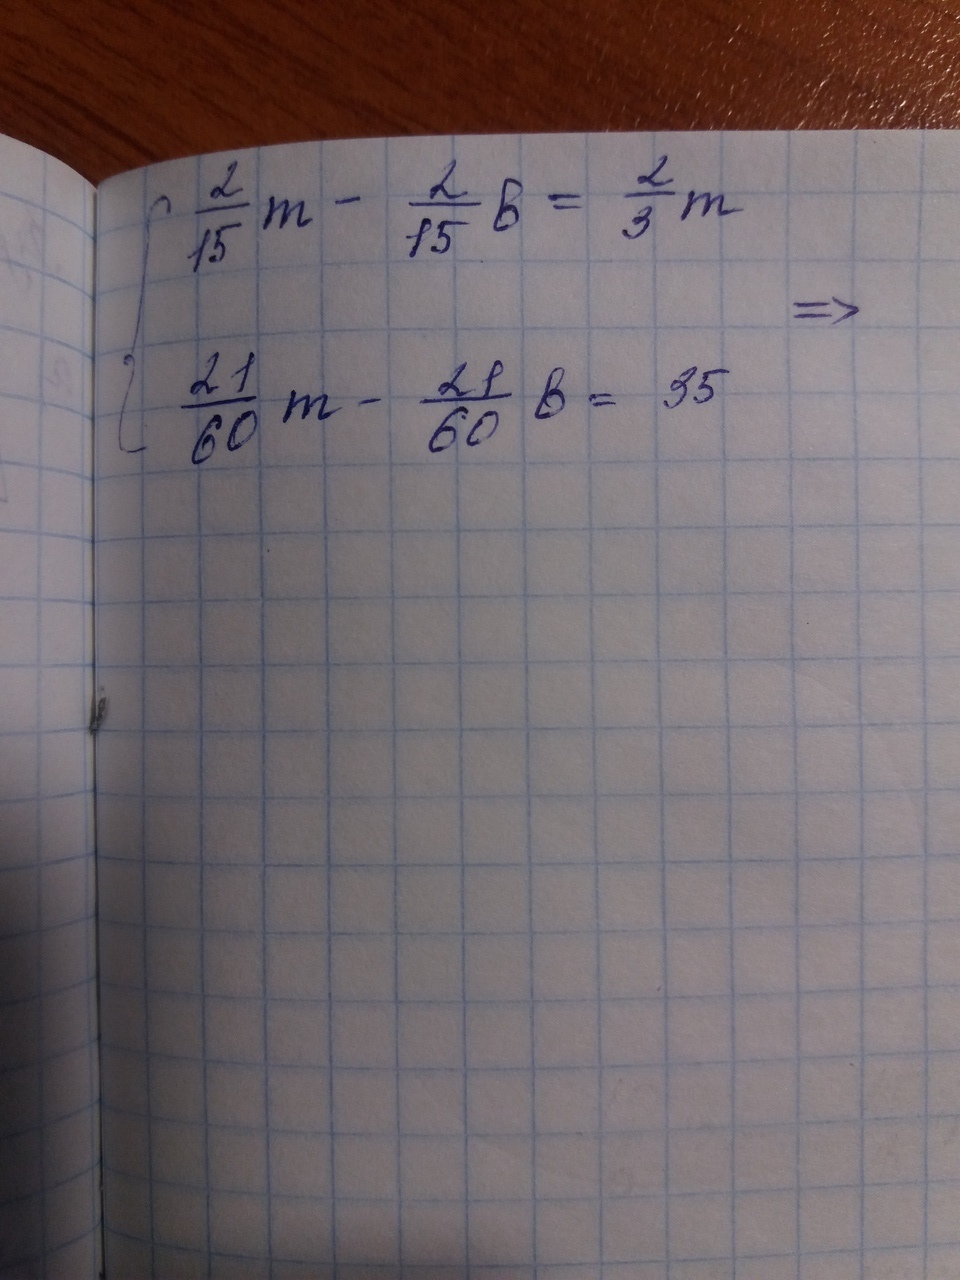 2/15 m - 2/15 в = 2/3 m
=>
21/60 m - 21/60 в = 35